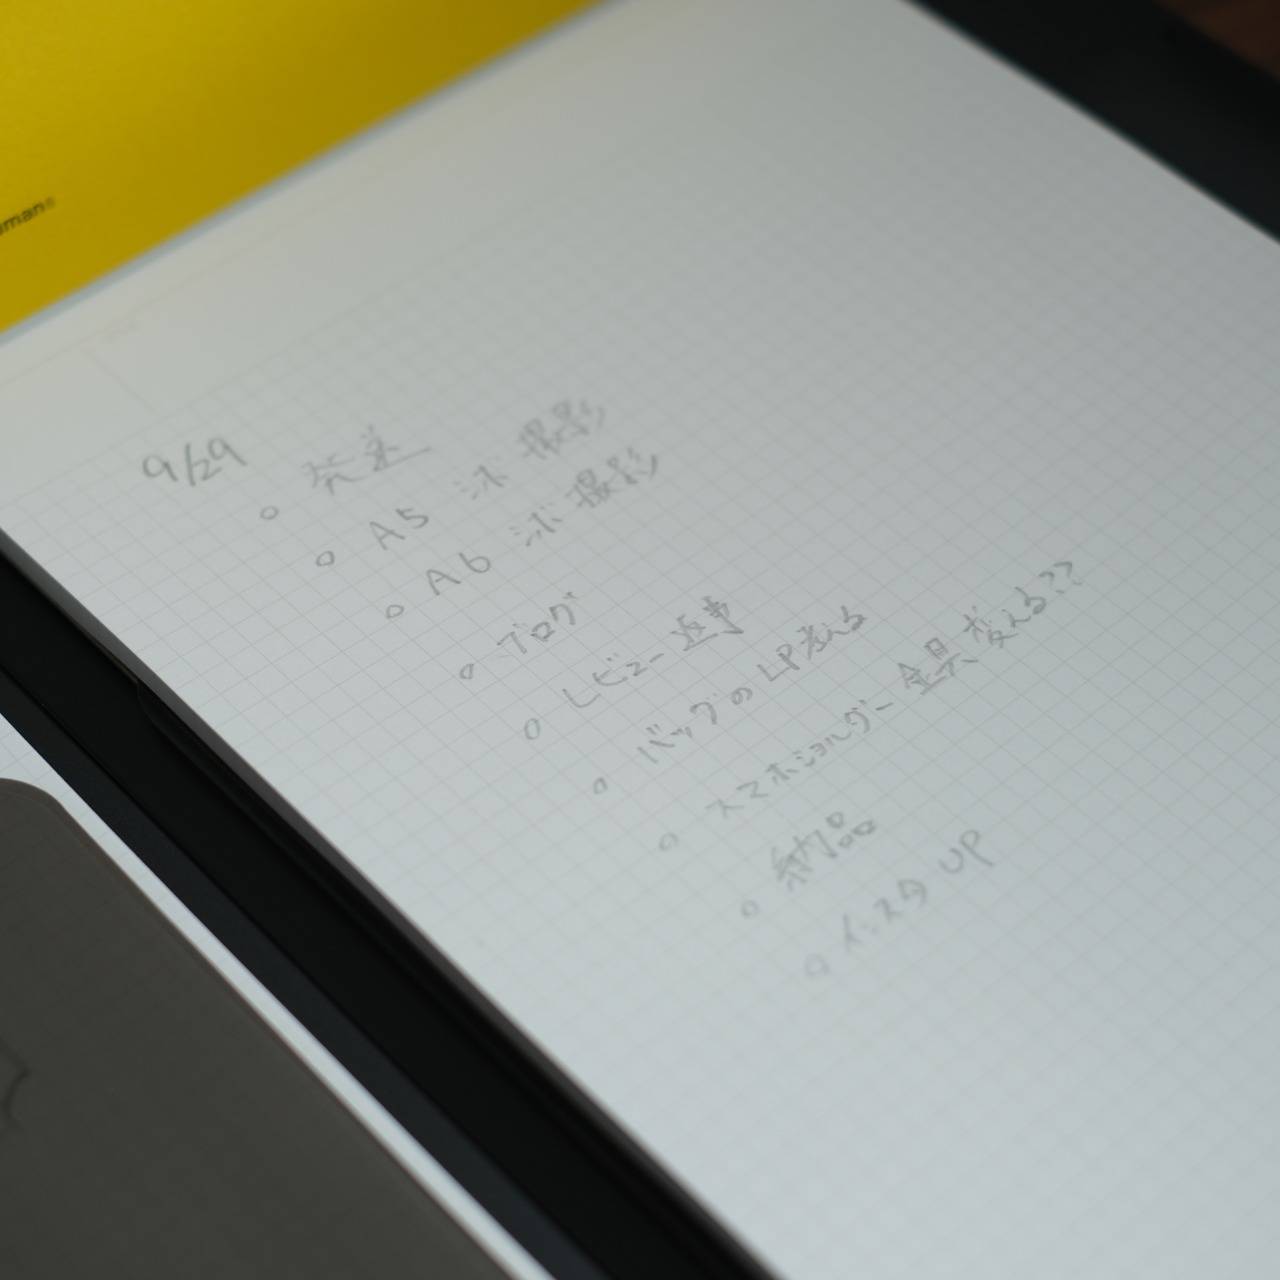 uman®
9/29
○ 発送
○ A5 ヨコ 撮影
○ A6 ヨコ 撮影
○ ブログ
○ レビュー返事
○ バッグの LP考える
○ スマホショルダー 金具変える??
○ 納品
○ インスタ UP